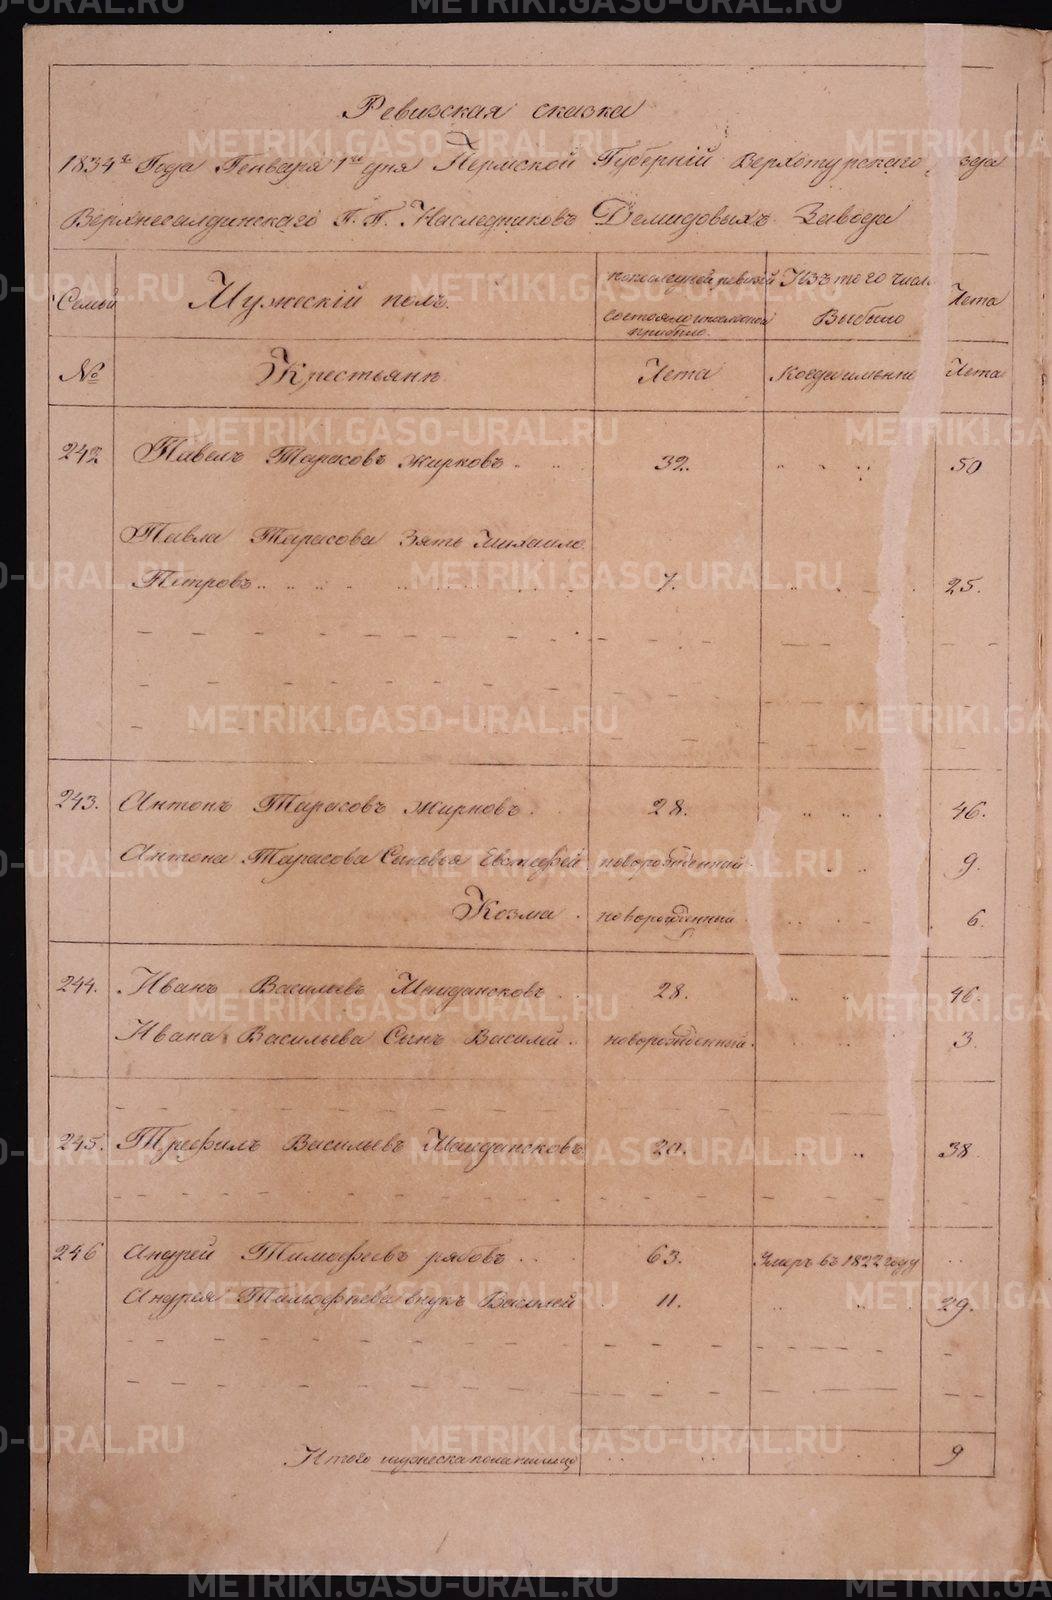 Ревизская сказка
1834го Года Генваря 1го дня Пермской Губернiй Верхотурскаго уезда
Верхнесалдинскаго Г. Г. Наследниковъ Демидовыхъ Завода
Семьи
Мужескiй полъ.
по последней ревизiи состояло и после оной прибыло.
Изъ того числа Выбыло
Лета
№
Крестьяне
Лета
Когда именно
Лета
242 Павелъ Тарасовъ жирковъ 32. 50
Павла Тарасова Зять Михайло
Петровъ 7. 25.
243. Антонъ Тарасовъ жирковъ. 28. 46.
Антона Тарасова Сыновья Евстафей новорожденный. 9.
Козма. новорожденный 6.
244. Иванъ Васильевъ 28. 46.
Ивана Васильева Сынъ Василей. новорожденный. 3.
245. Трефилъ Васильевъ 20. 38
246 Андрей Тимофеевъ рябовъ 63. Умеръ въ 1822 году
Андрея Тимофеева внукъ Василей 11. 29.
Итого мужеска пола налицо 9
METRIKI.GASO-URAL.RU